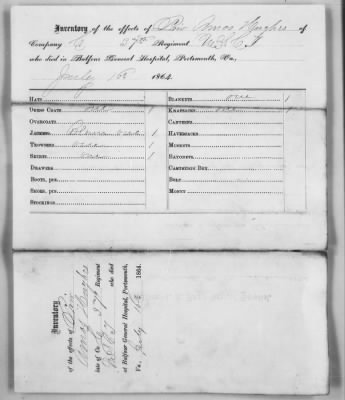 Inventory of the effects of Priv Amos Hughes of
Company G 37th Regiment U.S.C.T
who died in Balfour General Hospital, Portsmouth, Va.,
July 16 1864.
HATS
DRESS COATS 1
OVERCOATS
JACKETS 1
TROWSERS 1
SHIRTS one 1
DRAWERS
BOOTS, prs.
SHOES, prs.
STOCKINGS
BLANKETS one 1
KNAPSACKS one 1
CANTEENS
HAVERSACKS
MUSKETS
BAYONETS
CARTRIDGE BOX
BELT
MONEY
Inventory
of the effects of Priv
Amos Hughes
late of Co. G 37th Regiment
U.S.C.T who died
at Balfour General Hospital, Portsmouth,
Va., July 16 1864.